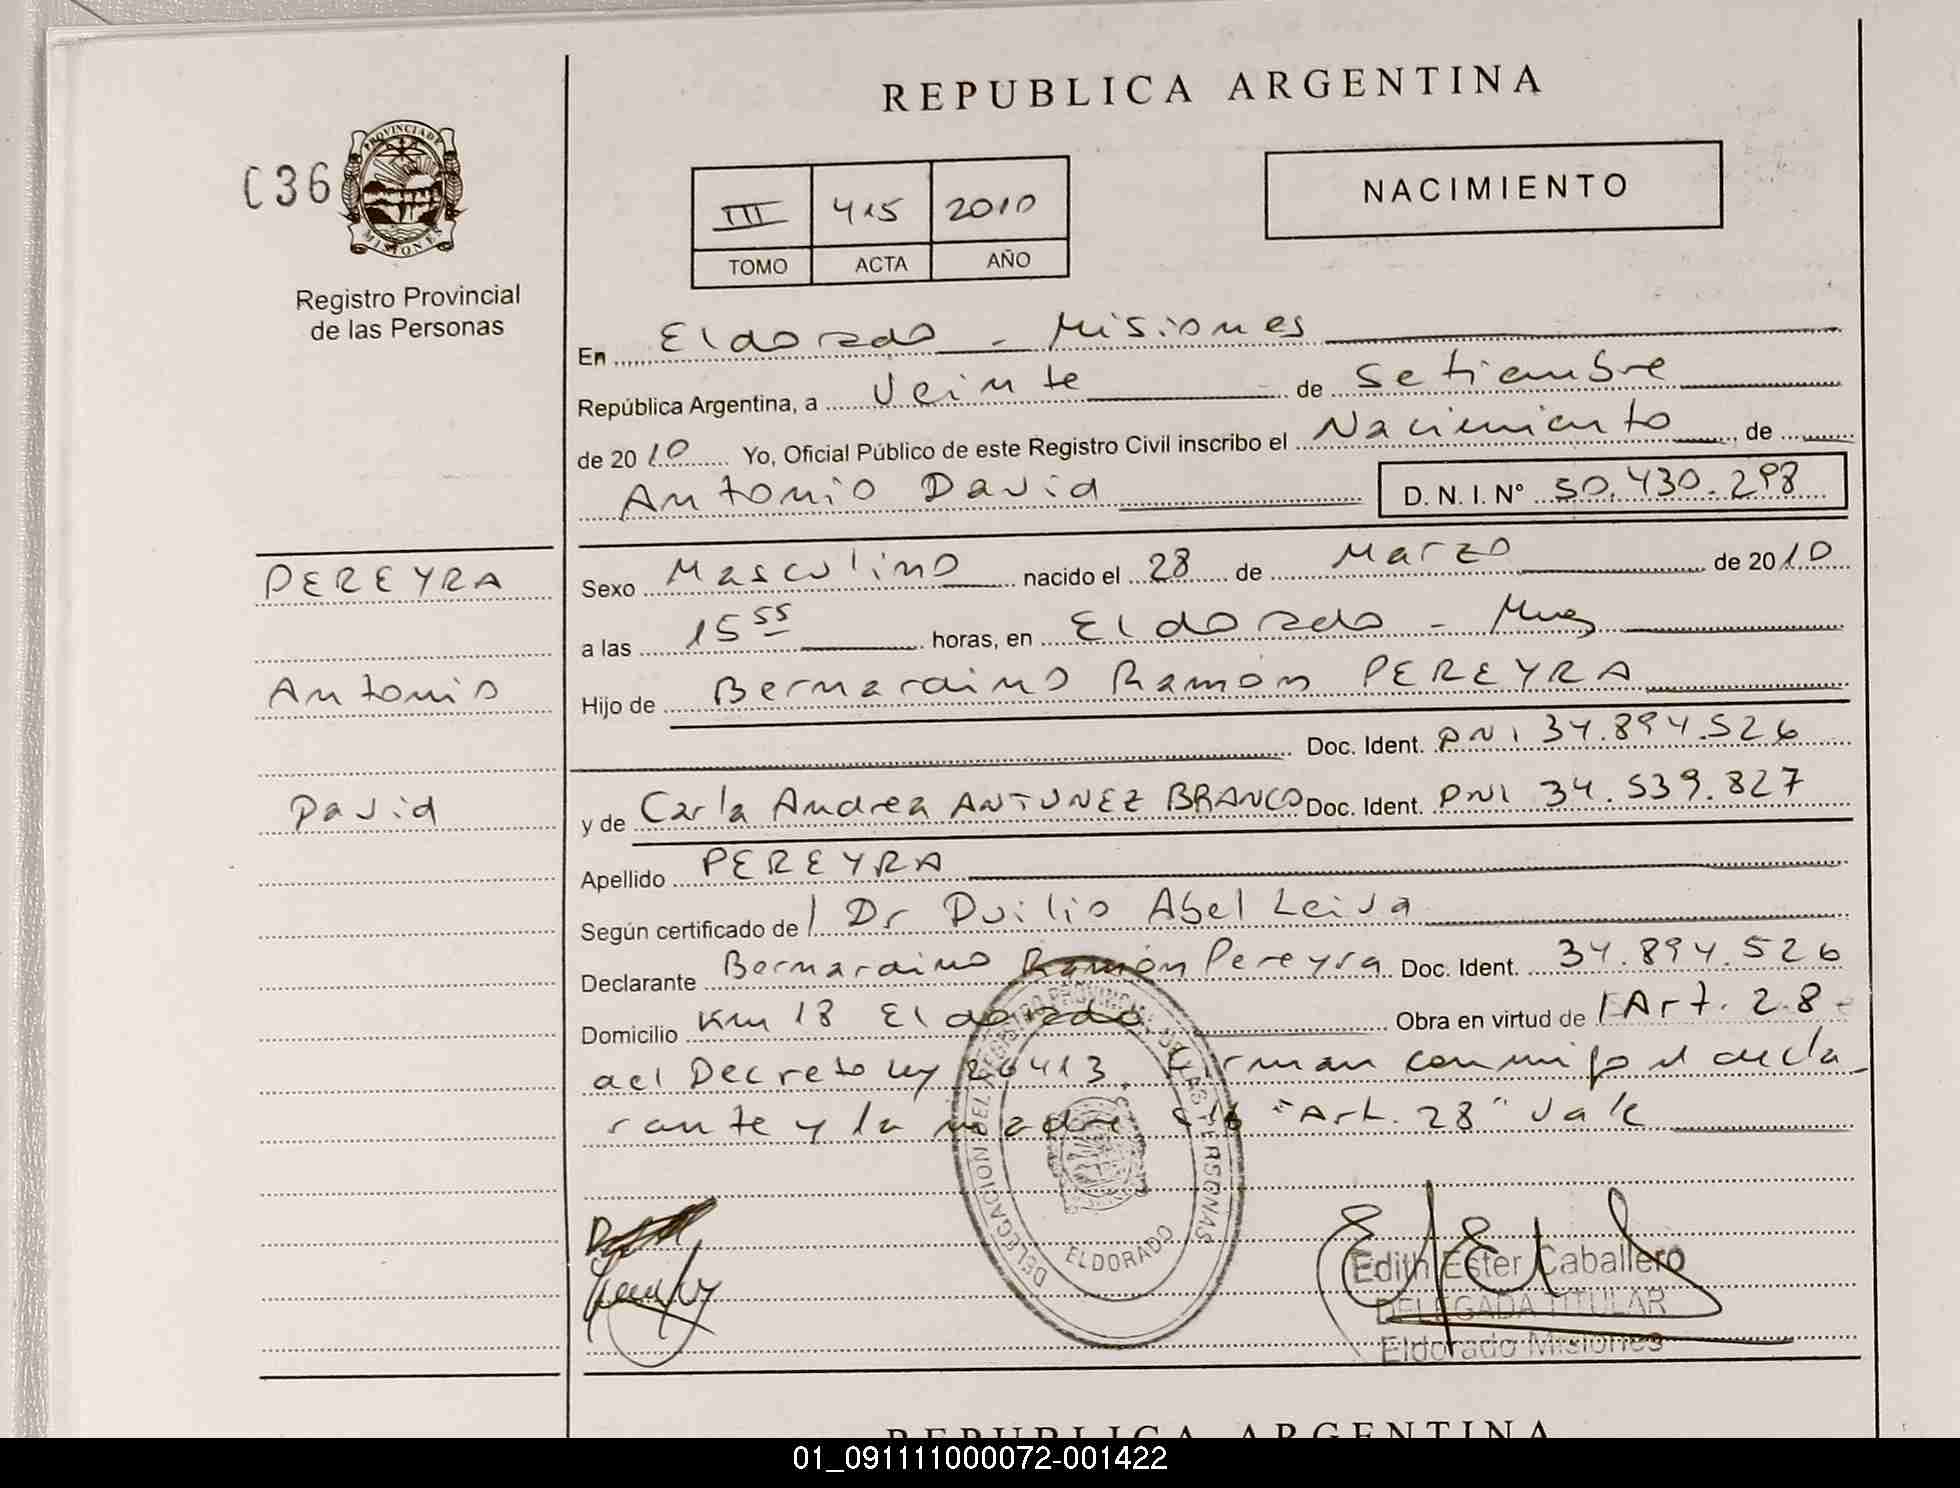 REPUBLICA ARGENTINA
C36
PROVINCIA DE
MISIONES
Registro Provincial
de las Personas
III 415 2010
TOMO ACTA AÑO
NACIMIENTO
En Eldorado - Misiones
República Argentina, a Veinte de Setiembre
de 2010 Yo, Oficial Público de este Registro Civil inscribo el Nacimiento, de
Antonio David D. N. I. Nº 50.430.298
PEREYRA
Antonio
David
Sexo Masculino nacido el 28 de Marzo de 2010
a las 15 55 horas, en Eldorado - Mnes
Hijo de Bernardino Ramón PEREYRA
Doc. Ident. DNI 34.894.526
y de Carla Andrea ANTUNEZ BRANCO Doc. Ident. DNI 34.539.827
Apellido PEREYRA
Según certificado de Dr Duilio Abel Leiva
Declarante Bernardino Ramón Pereyra Doc. Ident. 34.894.526
Domicilio Km 18 Eldorado Obra en virtud de Art. 28
del Decreto ley 26413. Firman conmigo el decla
rante y la madre "Art. 28" Vale
DELEGACION DEL REGISTRO PROVINCIAL DE LAS PERSONAS
ELDORADO
Edith Ester Caballero
DELEGADA TITULAR
Eldorado Misiones
REPUBLICA ARGENTINA
01_091111000072-001422